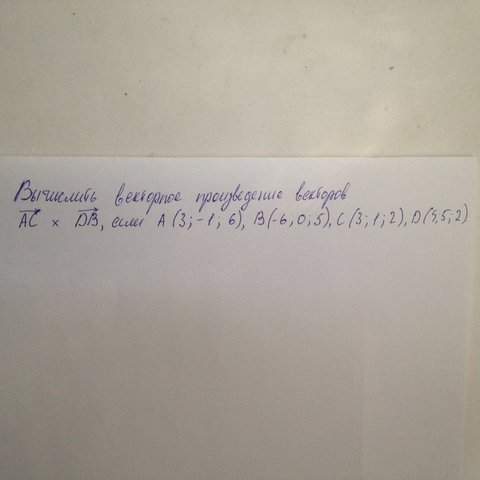 Вычислить векторное произведение векторов
AC × DB, если A (3; -1; 6), B(-6; 0; 5), C (3; 1; 2), D( 5; 2)